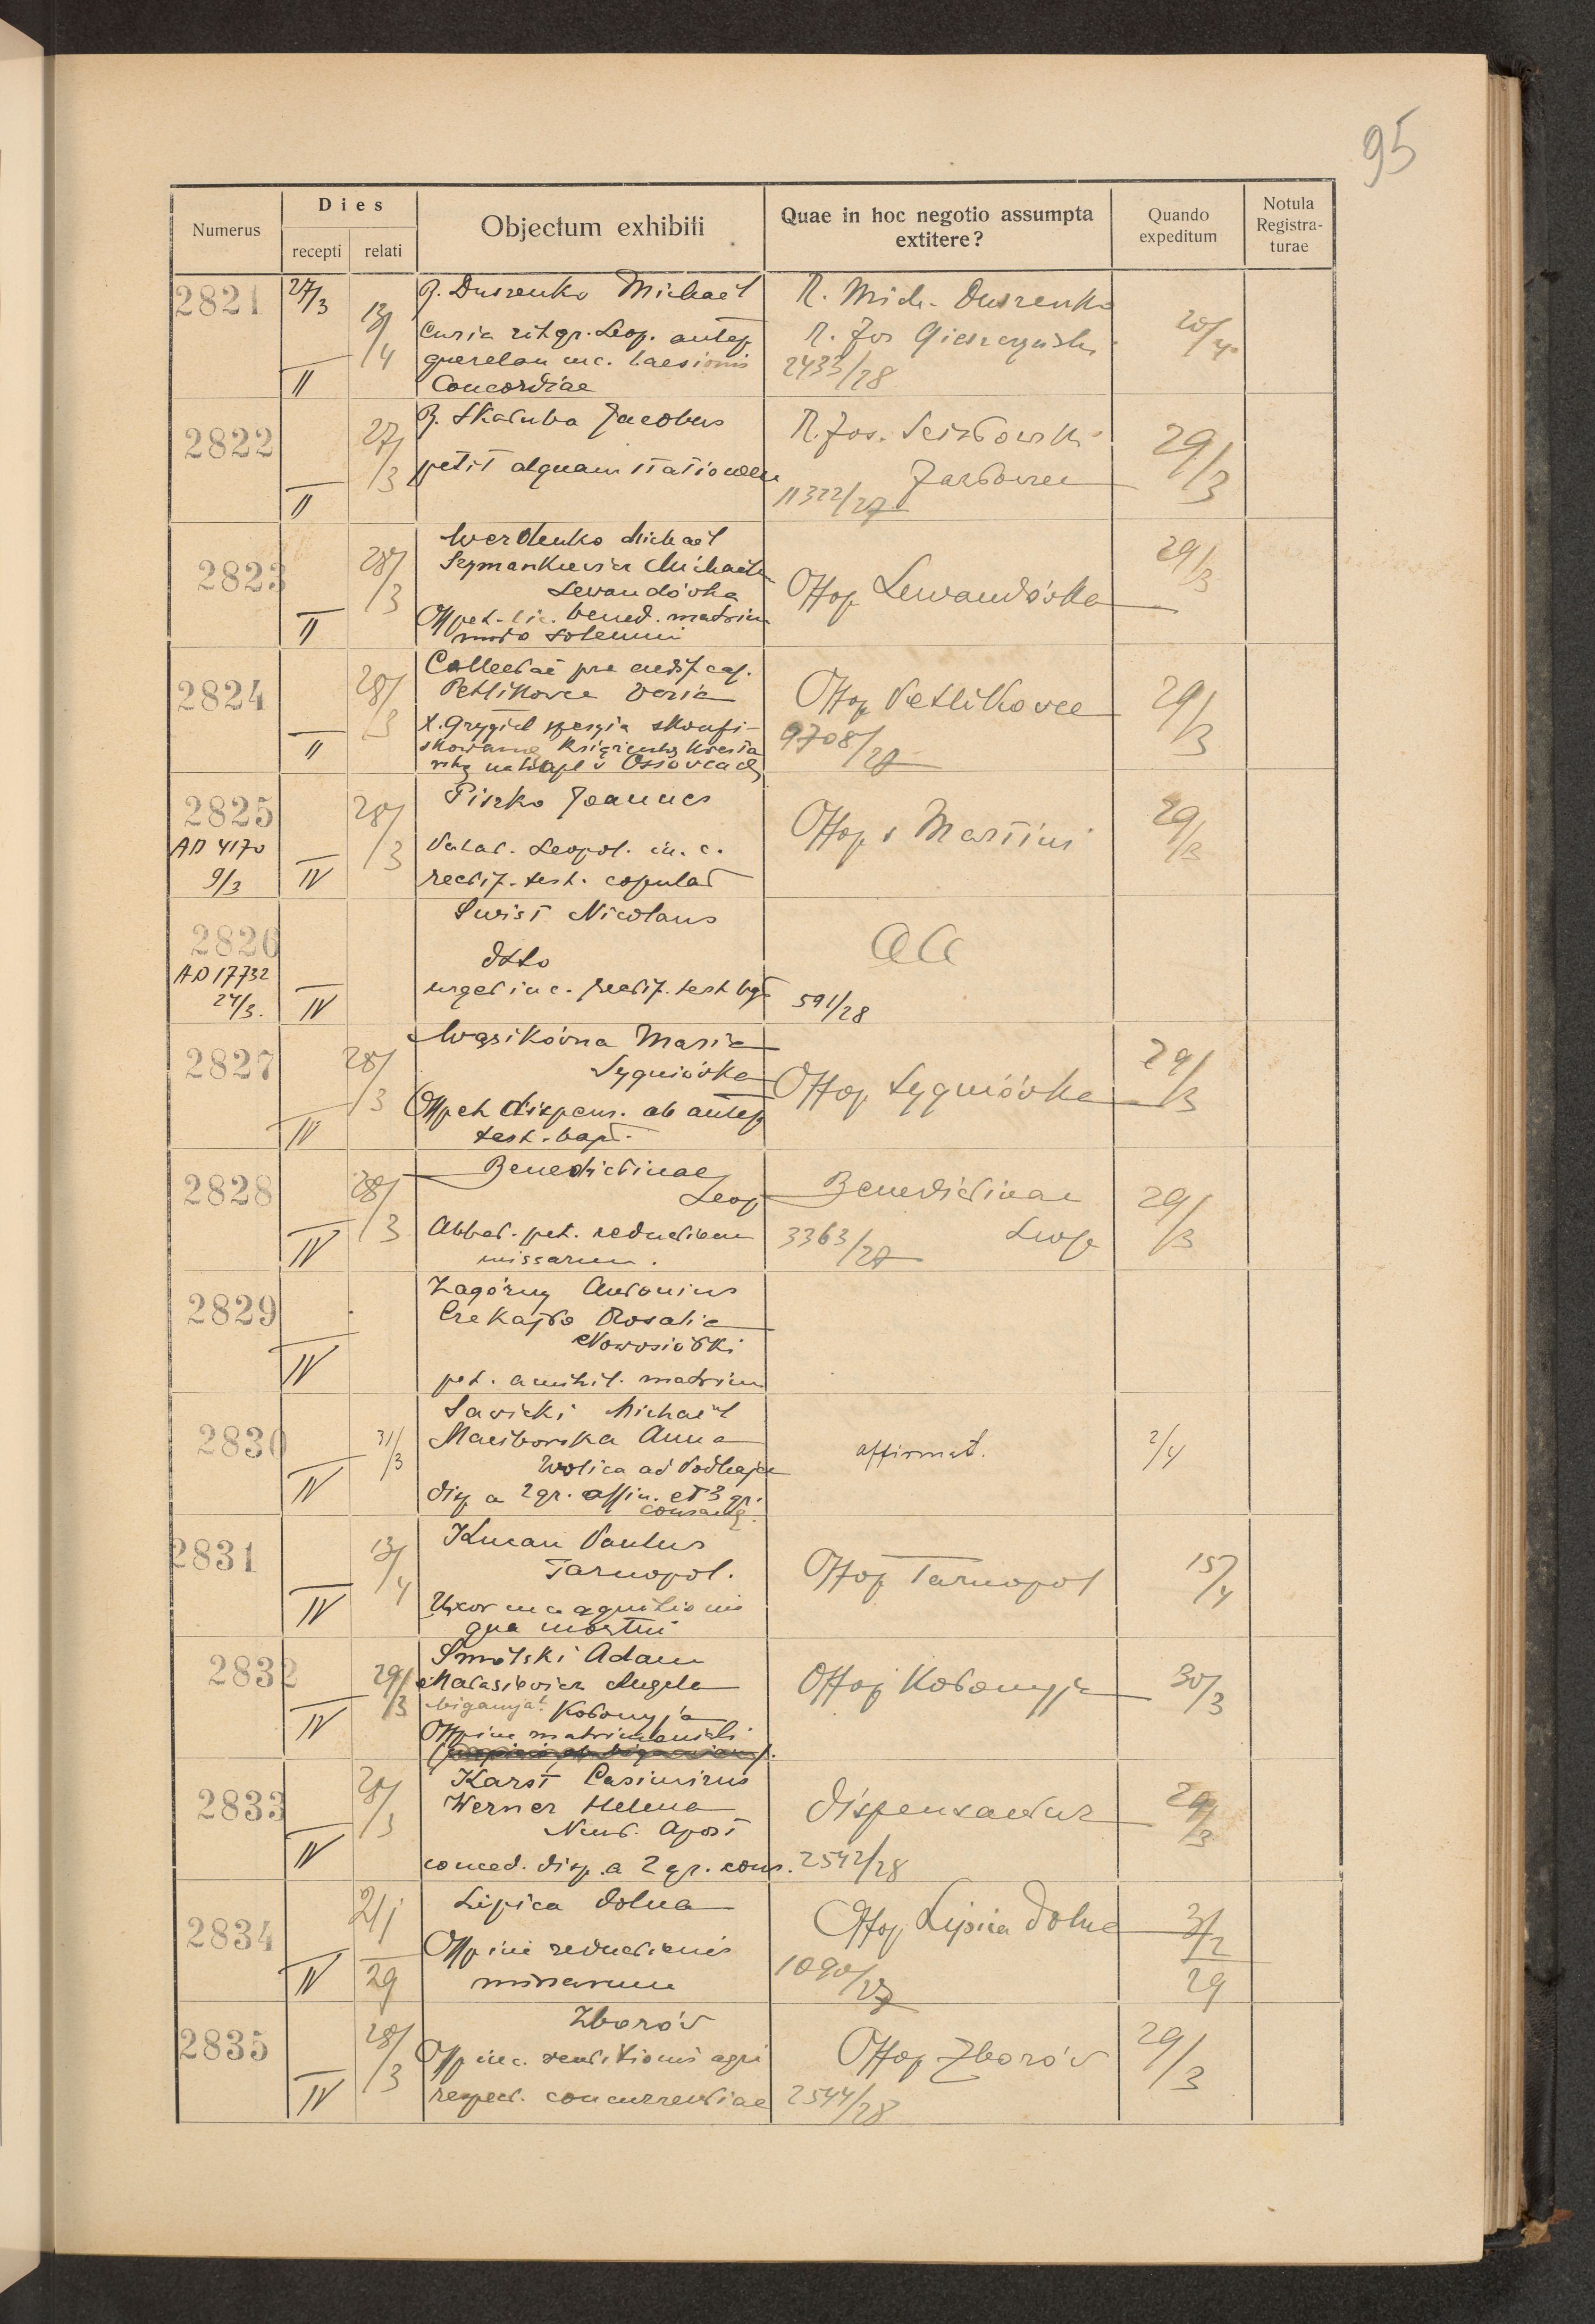 95
Numerus
Dies
recepti
relati
Objectum exhibiti
Quae in hoc negotio assumpta
extitere?
Quando
expeditum
Notula
Registra-
turae
2821
27/3
II
13/4
R. Duszenko Michaël
Curia rit. gr. Leop. antep
querelam inc. laesionis
Concordiae
R. Mich. Duszenko
R. Jos
2433/28
20/4
2822
II
27/3
R. Skałuba Jacobus
petit alquam stationem
R. Jos.
11322/27
29/3
2823
II
28/3
Werdenko Michaël
Szymankiewicz Michaela
Lewandówka
Offpet. lic. bened. matrim
modo solemni
Offop Lewandówka
29/3
2824
II
28/3
Collectae pro aedif cap.
Petlikowce
X. Grygiel
skowaną
w Ossowcach
Offop Petlikowce
9708/27
29/3
2825
AD 4170
9/3
IV
28/3
Piszko Joannes
Palat. Leopol. in. c.
rectif. test. copulat
Offop s Martini
29/3
2826
AD 17732
24/3.
IV
Swist Nicolaus
dtto
urget in c. rectif. test bapt
aa
591/28
2827
IV
28/3
Wąsikówna Maria
Sygniówka
Offpet dispens. ab antep
test. bapt.
Offop Sygniówka
29/3
2828
IV
28/3
Benedictinae
Leop
Abbat. pet. reductionem
missarum.
Benedictinae
Leop
3363/27
29/3
2829
IV
Zagórny Antonius
Czekajło Rosalia
Nowosiółki
pet. annihil. matrim
2830
IV
31/3
Sawicki Michaël
Maciborska Anna
Wolica ad Podhajce
disp a 2 gr. affin. et 3 gr.
consang.
affirmat.
2/4
2831
IV
13/4
Kucan Paulus
Tarnopol.
Uxor in c agnitionis
qua mortui
Offop Tarnopol
15/4
2832
IV
29/3
Smólski Adam
Matasiewicz Angela
bigamja! Kołomyja
Offpinc matrimonii
Offop Kołomyja
30/3
2833
IV
28/3
Karst Casimirus
Werner Helena
Nunt. Apost
conced. disp. a 2 gr. cons.
dispensantur
2542/28
29/3
2834
IV
2/1
29
Lipica dolna
Offp inc reductionis
missarum
Offop Lipica Dolna
1090/27
3/2
29
2835
IV
28/3
Zborów
Offp inc. venditionis agri
respect. concurrentiae
Offop Zborów
2544/28
29/3